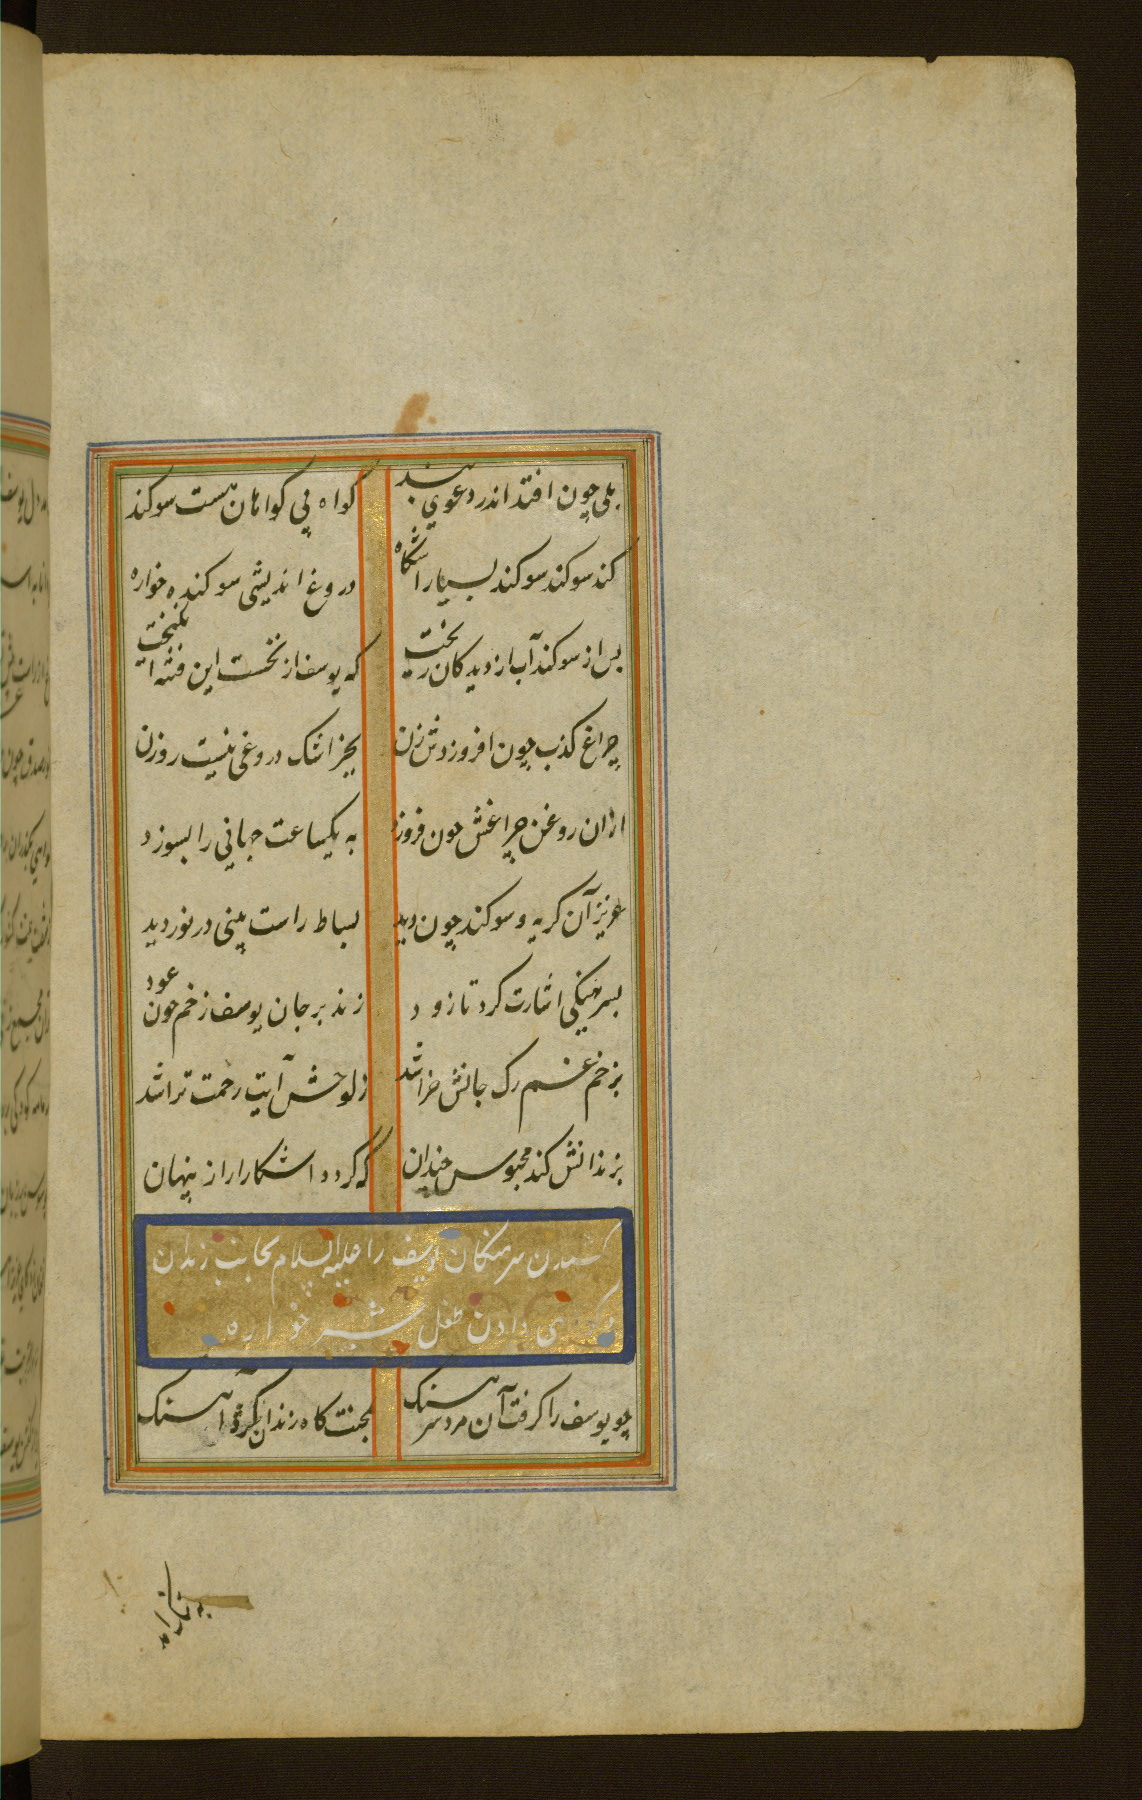 بلی چون افتد اندر دعوی بند گواه بی گواهان هست سوکند
کند سوکند سوکند بسیار آشکاه دروغ اندیشی سوکنده خواره
پس از سوکند آب از دیدکان ریخت که یوسف از نخست این فتنه انگیخت
چراغ کذب چون افروزدش زن بجز اشک دروغی نیست روزن
ازان روغن چراغش چون فروزد به یکساعت جهانی را بسوزد
عزیز آن کریه و سوکند چون دید بساط راست بینی در نوردید
بسرهنکی اشارت کرد تا زود زند بر جان یوسف زخم چون عود
بزخم غم رک جانش خراشد زلوحش آیت رحمت تراشد
بزندانش کند محبوس چندان که کردد آشکارا راز پنهان
کشیدن سرهنکان یوسف را علیه السلام بجانب زندان
و کواهی دادن طفل شیر خواره
چو یوسف را کرفت آن مرد سرهنک بمحنت کاه زندان کرد آهنک
به تنک آمد